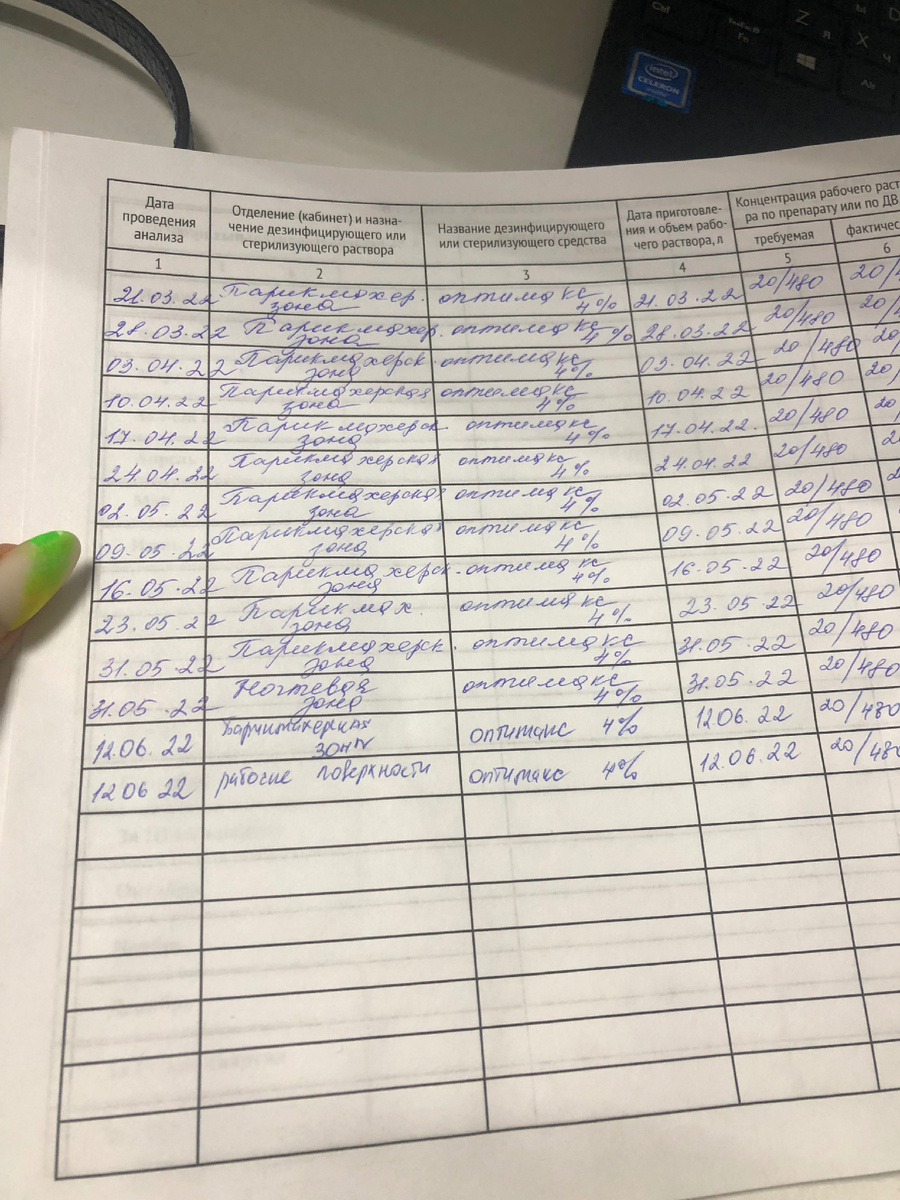 Дата
проведения
анализа
Отделение (кабинет) и назна-
чение дезинфицирующего или
стерилизующего раствора
Название дезинфицирующего
или стерилизующего средства
Дата приготовле-
ния и объем рабо-
чего раствора, л
Концентрация рабочего раст
ра по препарату или по ДВ
требуемая
фактичес
1 2 3 4 5 6
21.03.22 Парикмахер. зона оптимакс 4% 21.03.22 20/480 20/
28.03.22 Парикмахер. зона оптимакс 4% 28.03.22 20/480 20/
03.04.22 Парикмахерск зона оптимакс 4% 03.04.22 20/480 20/
10.04.22 Парикмахерская зона оптимакс 4% 10.04.22 20/480 20/
17.04.22 Парикмахерск. зона оптимакс 4% 17.04.22. 20/480 20/
24.04.22 Парикмахерская зона оптимакс 4% 24.04.22 20/480
02.05.22 Парикмахерская зона оптимакс 4% 02.05.22 20/480
09.05.22 Парикмахерская зона оптимакс 4% 09.05.22 20/480
16.05.22 Парикмахерск. зона оптимакс 4% 16.05.22 20/480
23.05.22 Парикмах. зона оптимакс 4% 23.05.22 20/480
31.05.22 Парикмахерск. зона оптимакс 4% 31.05.22 20/480
31.05.22 Ногтевая зона оптимакс 4% 31.05.22 20/480
12.06.22 Парикмахерская зона оптимакс 4% 12.06.22 20/480
12 06 22 рабочие поверхности оптимакс 4% 12.06.22 20/480
intel
CELERON
Fn
Z
Я
X
Ч
Alt
Ы